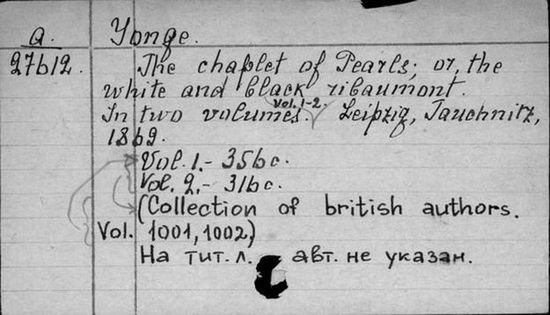 a. Yonge.
27612. The chaplet of Pearls; or, the
white and black ribaumont.
In two volumes. Vol. 1-2. Leipzig, Tauchnitz,
1869.
Vol. 1.- 356 c.
Vol. 2.- 316 c.
(Collection of british authors.
Vol. 1001, 1002)
На тит. л. авт. не указан.